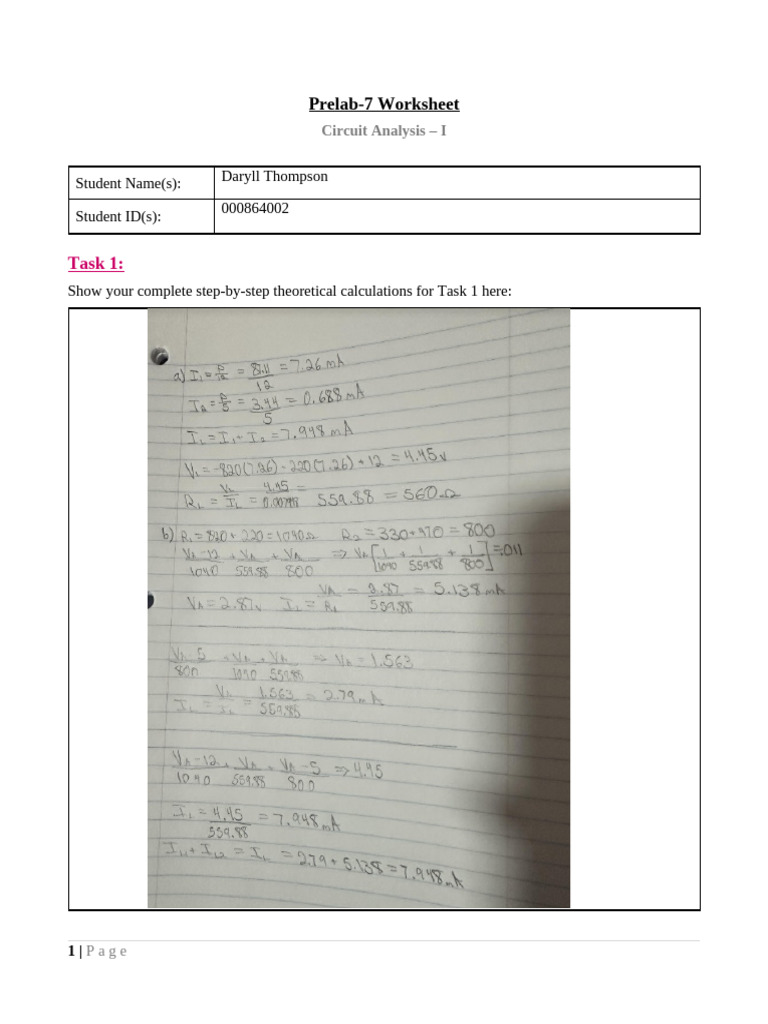 Prelab-7 Worksheet
Circuit Analysis – I
Student Name(s): Daryll Thompson
Student ID(s): 000864002
Task 1:
Show your complete step-by-step theoretical calculations for Task 1 here:
a) I₁ = P/12 = 87.11/12 = 7.26 mA
I₂ = P/5 = 3.44/5 = 0.688 mA
I_L = I₁ + I₂ = 7.948 mA
V_L = -820(7.26) - 220(7.26) + 12 = 4.45 v
R_L = V_L/I_L = 4.45/0.007948 = 559.88 = 560 Ω
b) R₁ = 820 + 220 = 1040 Ω R₂ = 330 + 470 = 800
VA-12/1040 + VA/559.88 + VA/800 ⇒ VA[1/1040 + 1/559.88 + 1/800] = .011
VA = 2.87 v I_L = VA/R_L = 2.87/559.88 = 5.138 mA
VA-5/800 + VA/1040 + VA/559.88 ⇒ VA = 1.563
I_L = VL/IL = 1.563/559.88 = 2.79 mA
VA-12/1040 + VA/559.88 + VA-5/800 ⇒ 4.45
I_L = 4.45/559.88 = 7.948 mA
I_L1 + I_L2 = I_L = 2.79 + 5.138 = 7.948 mA
1 | Page